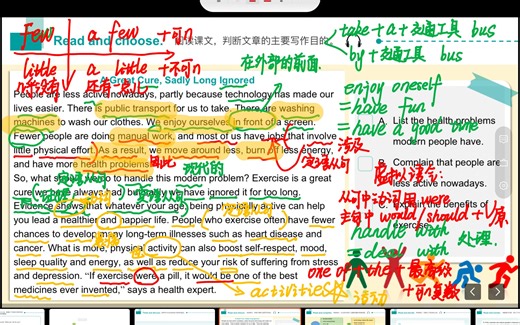 few a few +可n
Read and choose. 阅读课文，判断文章的主要写作目的
take+a+交通工具 bus
by+交通工具 bus
little a little +不可n
在外部的前面.
A Great Cure, Sadly Long Ignored
People are less active nowadays, partly because technology has made our
lives easier. There is public transport for us to take. There are washing
machines to wash our clothes. We enjoy ourselves in front of a screen.
Fewer people are doing manual work, and most of us have jobs that involve
little physical effort. As a result, we move around less, burn less energy,
and have more health problems.
So, what should we do to handle this modern problem? Exercise is a great
cure we have always had, but sadly we have ignored it for too long.
Evidence shows that whatever your age, being physically active can help
you lead a healthier and happier life. People who exercise often have fewer
chances to develop many long-term illnesses such as heart disease and
cancer. What is more, physical activity can also boost self-respect, mood,
sleep quality and energy, as well as reduce your risk of suffering from stress
and depression. “If exercise were a pill, it would be one of the best
medicines ever invented,” says a health expert.
enjoy oneself
=have fun
=have a good time
A List the health problems
modern people have.
B Complain that people are
less active nowadays.
C Explain the benefits of
exercise.
因此
现代的
虚拟语气:
从句中动词用 were
主句中 would/should+V原
handle with
deal with 处理.
one of+the+最高级
+可n复数
activities 活动